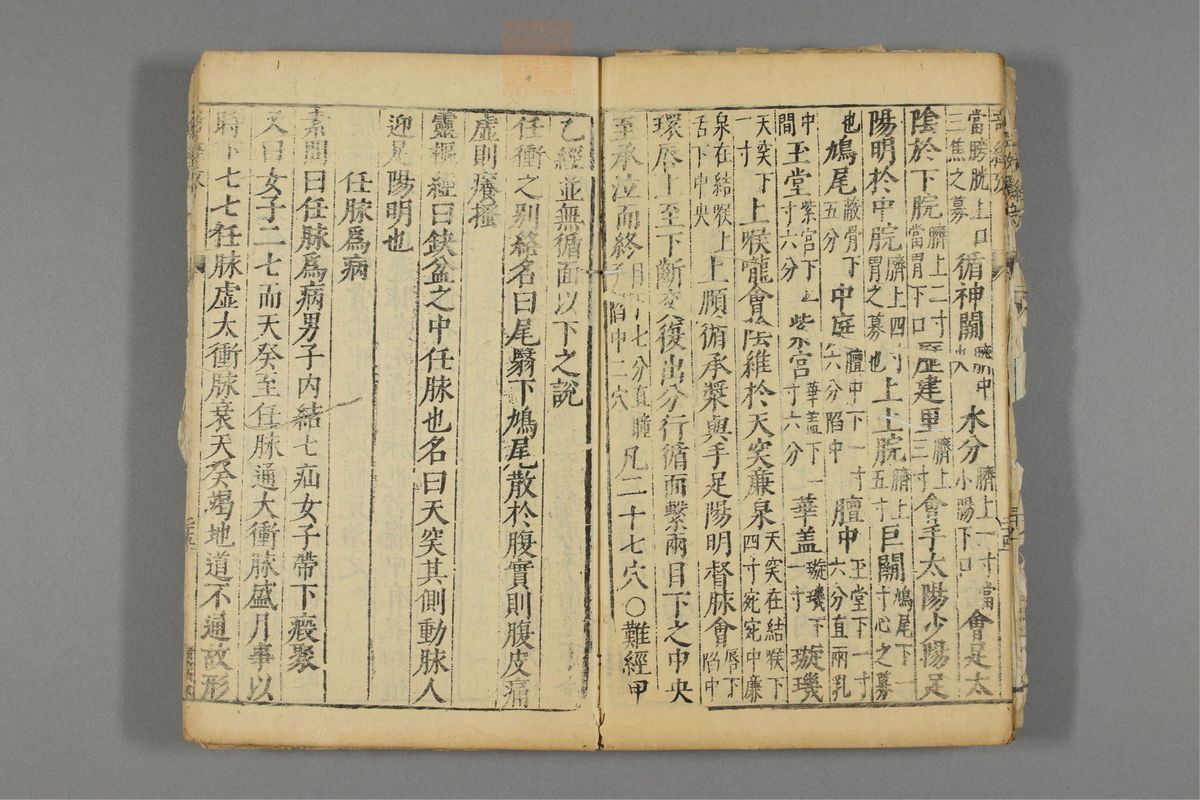 當膀胱上口
三焦之募循神闕臍中
央水分臍上一寸當
小腸下口會足太
陰於下脘臍上二寸
當胃下口歷建里臍上
三寸會手太陽少陽足
陽明於中脘臍上四寸
胃之募也上上脘臍上
五寸巨闕鳩尾下一
寸心之募
也鳩尾蔽骨下
五分中庭膻中下一寸
六分陷中膻中玉堂下一寸
六分直兩乳
中間玉堂紫宮下
寸六分紫宮華盖下一
寸六分華盖璇璣下
一寸璇璣
天突下
一寸上喉嚨會陰維於天突廉泉天突在結喉下
四寸宛宛中廉
泉在結喉上
舌下中央上頤循承漿與手足陽明督脉會唇下
陷中
環唇上至下齗交復出分行循面繫兩目下之中央
至承泣而終目下七分直瞳
子陷中二穴凡二十七穴○難經甲
乙經並無循面以下之說
任衝之別絡名曰尾翳下鳩尾散於腹實則腹皮痛
虛則癢搔
靈樞經曰缺盆之中任脉也名曰天突其側動脉人
迎足陽明也
任脉爲病
素問曰任脉爲病男子内結七疝女子帶下瘕聚
又曰女子二七而天癸至任脉通大衝脉盛月事以
時下七七任脉虛太衝脉衰天癸竭地道不通故形